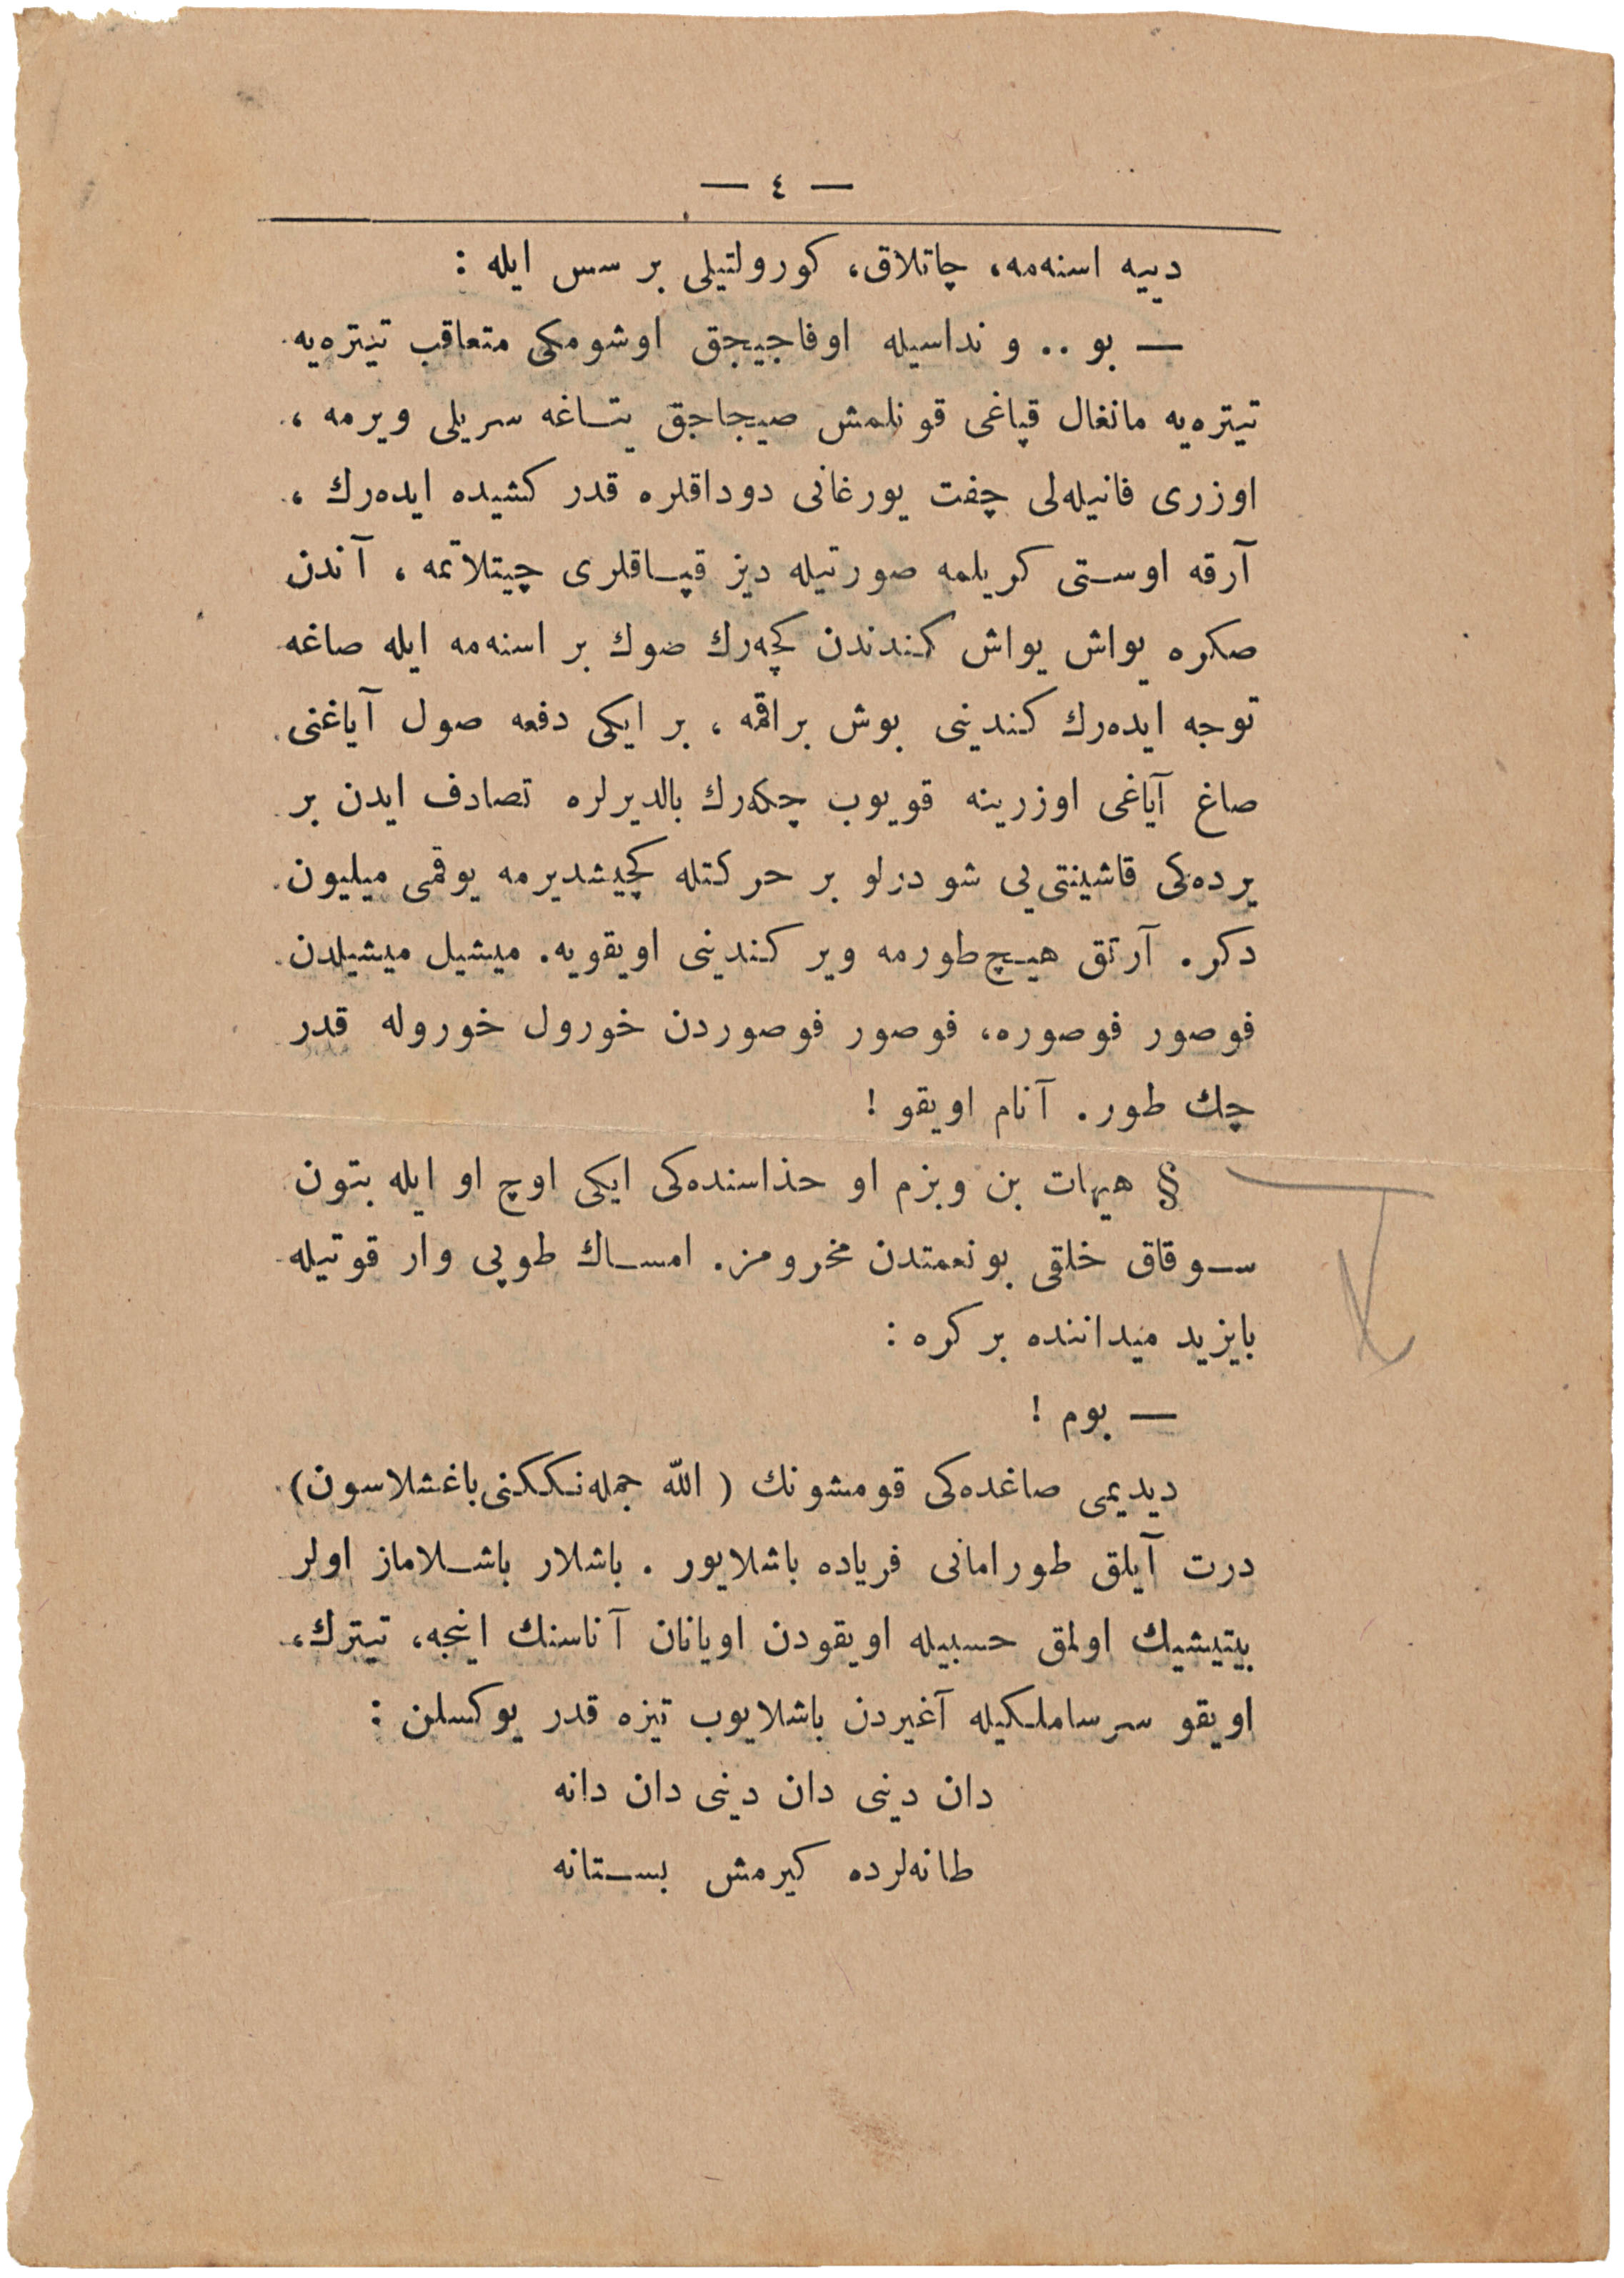 — ٤ —
دییه اسنه‌مه، چاتلاق، کورولتیلی بر سس ایله :
— بو .. و نداسیله اوفاجیجق اوشومکی متعاقب تیتره‌یه
تیتره‌یه مانغال قپاغی قونلمش صیجاجق یتـاغه سریلی ویرمه ،
اوزری فانیله‌لی چفت یورغانی دوداقلره قدر کشیده ایده‌رك ،
آرقه اوستی کریلمه صورتیله دیز قپـاقلری چیتلاتمه ، آندن
صکره یواش یواش کندندن کچه‌رك صوك بر اسنه‌مه ایله صاغه
توجه ایده‌رك کندینی بوش براقمه ، بر ایکی دفعه صول آیاغنی
صاغ آیاغی اوزرینه قویوب چکه‌رك بالدیرلره تصادف ایدن بر
یرده‌کی قاشینتی‌یی شو درلو بر حرکتله کچیشدیرمه یوقمی میلیون
دکر. آرتق هیـچ طورمه ویر کندینی اویقویه. میشیل میشیلدن
فوصور فوصوره، فوصور فوصوردن خورول خوروله قدر
چك طور. آنام اویقو !
§ هیهات بن وبزم او حذاسنده‌کی ایکی اوچ او ایله بتون
سـوقاق خلقی بونعمتدن محرومز. امسـاك طوپی وار قوتیله
بایزید میداننده بر کره :
— بوم !
دیدیمی صاغده‌کی قومشونك ( الله جمله‌نککنی باغشلاسون)
درت آیلق طورامانی فریاده باشلایور . باشلار باشـلاماز اولر
بیتیشیك اولمق حسبیله اویقودن اویانان آناسنك اینجه، تیترك،
اویقو سرساملـکیله آغیردن باشلایوب تیزه قدر یوکسلن :
دان دینی دان دینی دان دانه
طانه‌لرده کیرمش بسـتانه